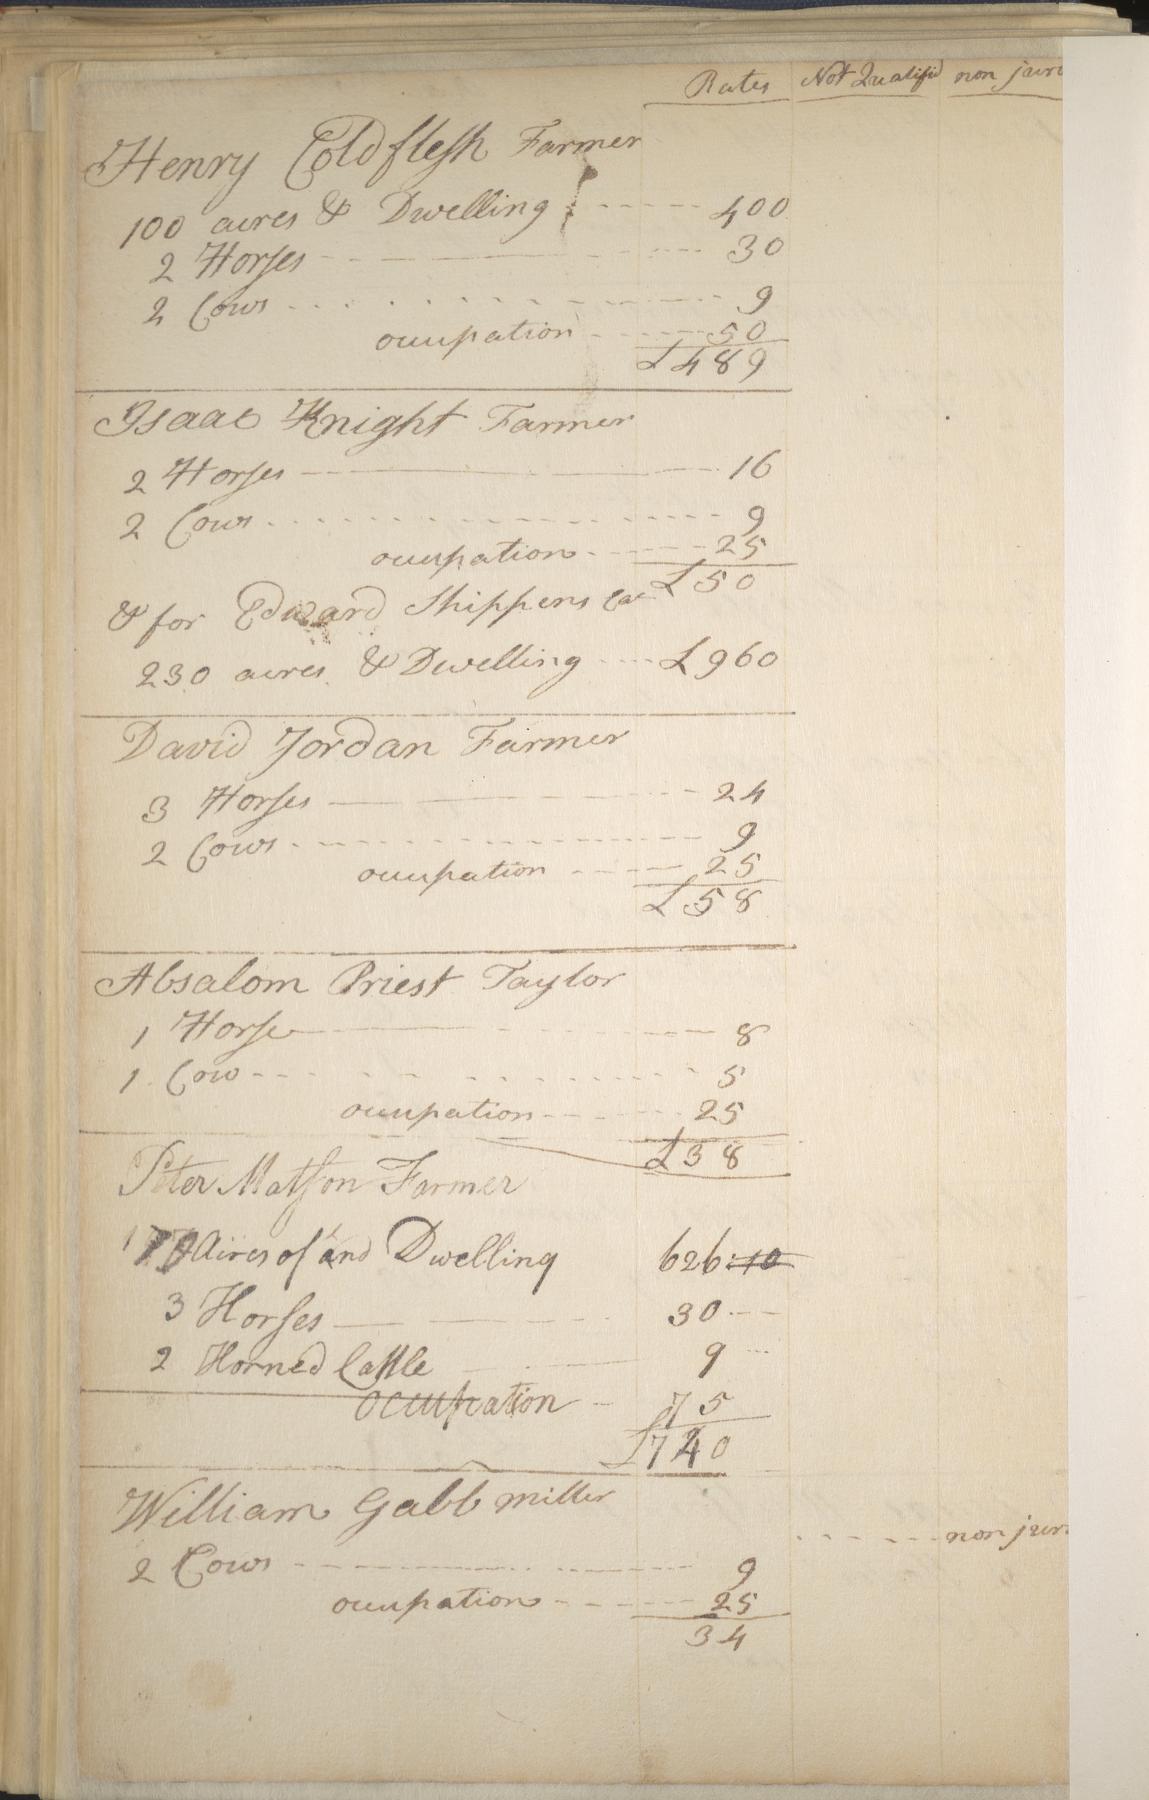 Rates Not Qualifid non juro
Henry Coldflesh Farmer
100 acres & Dwelling 400
2 Horses 30
2 Cows 9
occupation 50
£489
Isaac Knight Farmer
2 Horses 16
2 Cows 9
occupation 25
£50
& for Edward Shippens Est
230 acres & Dwelling £960
David Jordan Farmer
3 Horses 24
2 Cows 9
occupation 25
£58
Absalom Priest Taylor
1 Horse 8
1 Cow 5
occupation 25
£38
Peter Matson Farmer
Acres of and Dwelling 626:10
3 Horses 30
2 Horned Cattle 9
occupation 75
£740
William Gabb miller
non juro
2 Cows 9
occupation 25
34